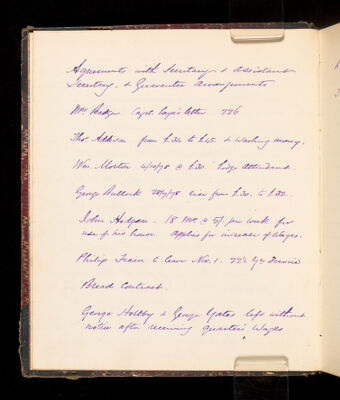 Agreements with Secretary & Assistant
Secretary, & Guarantee Arrangements
Mrs Badger Capt. letter 226
Thos. Addison from £34 to £45. & Washing money.
Wm. Morton 4/10/98 @ £30. Lodge Attendant.
George Bullock 28/7/98 rise from £30. to £32.
John Hodgson. 18 Mos. @ 5/ per week for
use of his house. Applies for increase of Wages.
Philip to leave Nov. 1. 22½ Yrs Service
Bread Contract.
George Holtby & George Yates left without
notice after receiving quarter's Wages.